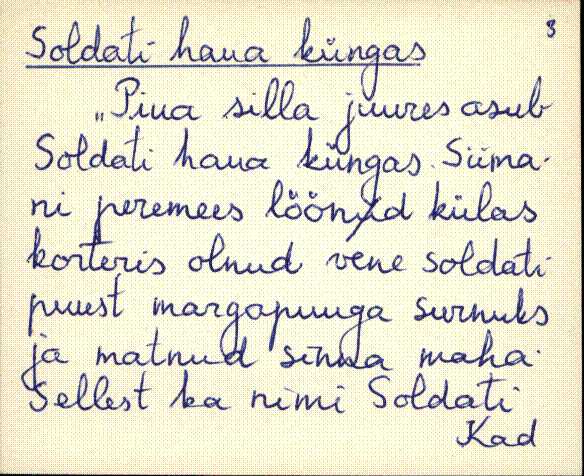 3
Soldati haua küngas
„Piua silla juures asub
Soldati haua küngas. Siima-
ni peremees löönud külas
korteris olnud vene soldati
puust margapuuga surnuks
ja matnud sinna maha.
Sellest ka nimi Soldati
Kad